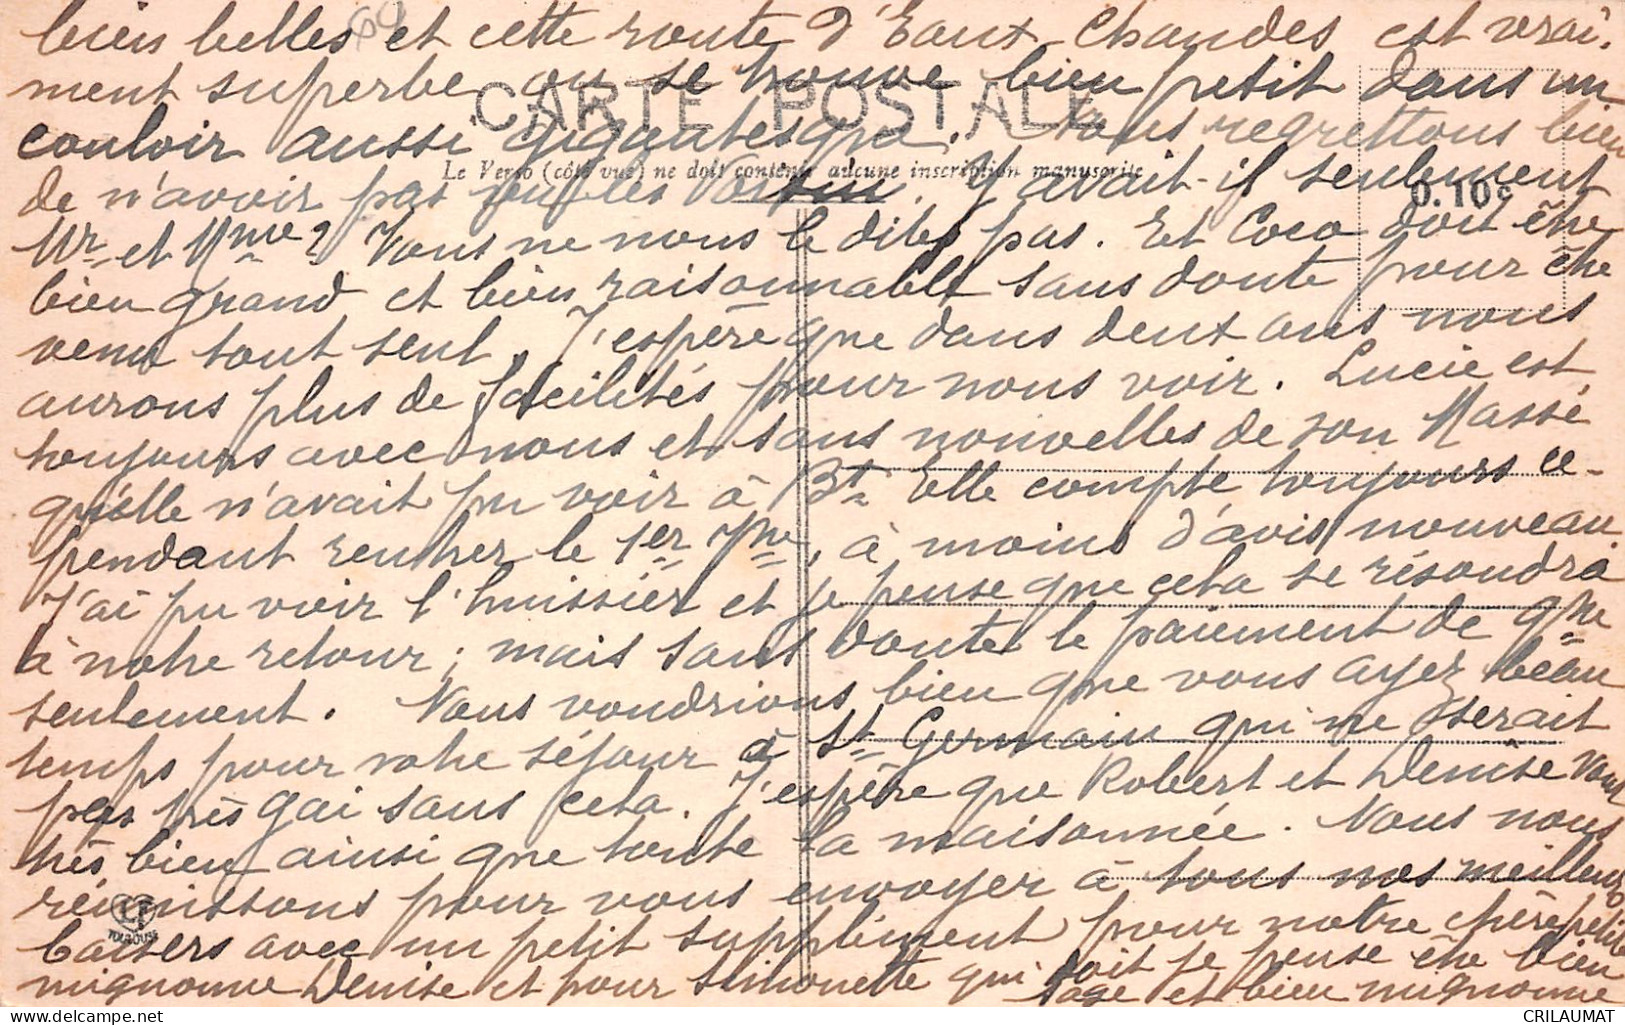 bien belles et cette route d'Eaux-Chaudes est vrai-
ment superbe on se trouve bien petit dans un
CARTE POSTALE
couloir aussi gigantesque. Nous regrettons bien
Le Verso (côté vue) ne doit contenir aucune inscription manuscrite
de n'avoir pas vu les. Y avait-il seulement
0.10c
Mr et Mme? Vous ne nous le dites pas. Et Coco doit être
bien grand et bien raisonnable sans doute pour être
venu tout seul. J'espère que dans deux ans nous
aurons plus de facilités pour nous voir. Lucie est
toujours avec nous et sans nouvelles de son Massé
qu'elle n'avait pu voir à Bt. Elle compte toujours ce-
pendant rentrer le 1er 7bre, à moins d'avis nouveau.
J'ai pu voir l'huissier et je pense que cela se résoudra
à notre retour; mais sans doute le paiement de
seulement. Nous voudrions bien que vous ayez beau
temps pour votre séjour à St Germain qui ne serait
pas très gai sans cela. J'espère que Robert et Denise vont
très bien ainsi que toute la maisonnée. Nous nous
réunissons pour vous envoyer à tous nos meilleurs
TOULOUSE
baisers avec un petit supplément pour notre chère petite
mignonne Denise et pour Simonette qui doit je pense être bien
sage et bien mignonne
CRILAUMAT